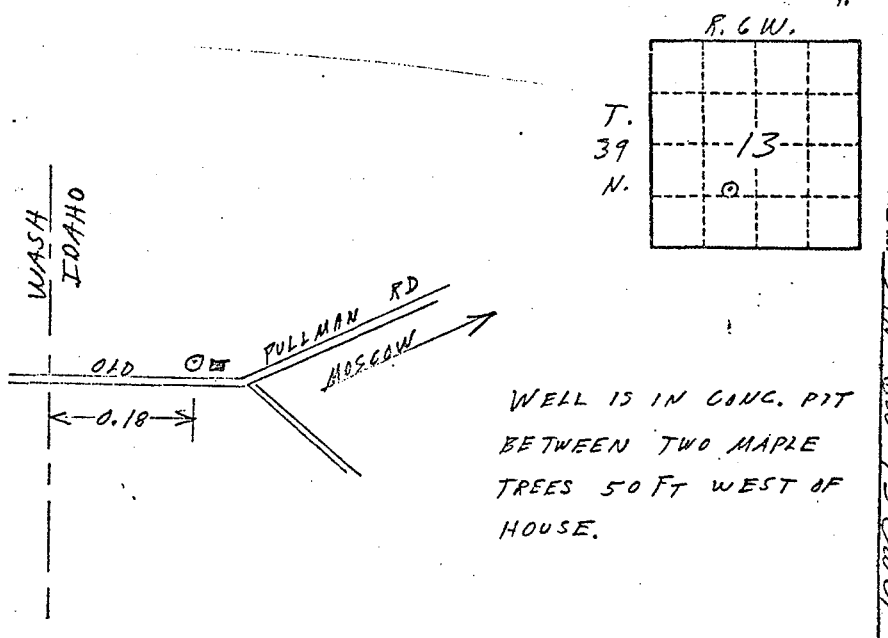 R. 6 W.
T.
39
N.
13
WASH
IDAHO
OLD
PULLMAN RD
MOSCOW
0.18
WELL IS IN CONC. PIT
BETWEEN TWO MAPLE
TREES 50 FT WEST OF
HOUSE.